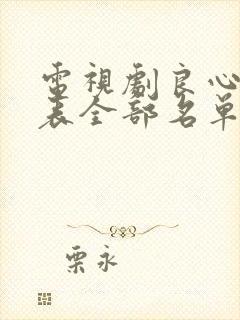 電視劇良心
表全部名單
栗永